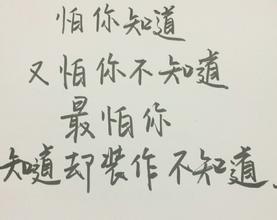 怕你知道
又怕你不知道
最怕你
知道却装作不知道、